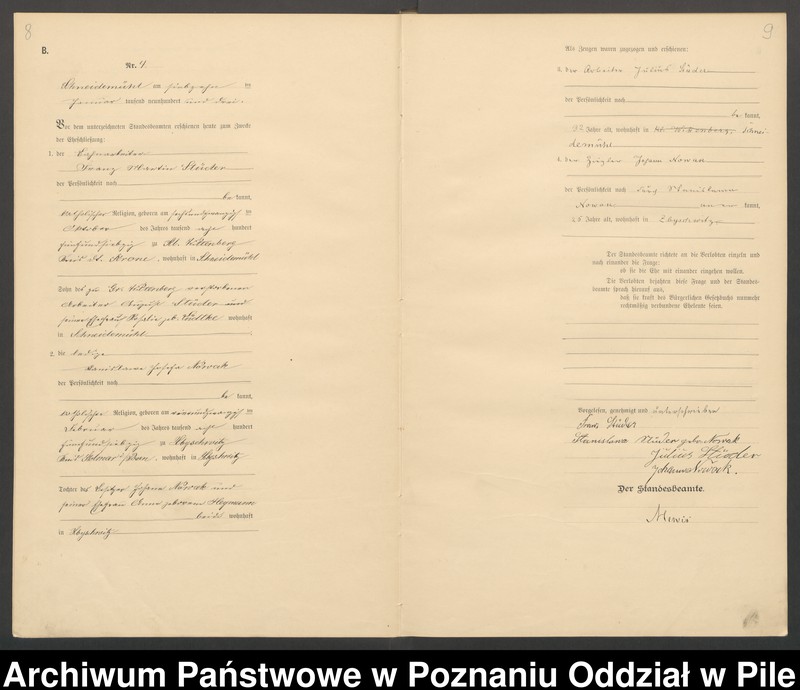 8
B.
Nr. 4
Schneidemühl am siebzehn ten
Januar tausend neunhundert und drei.
Vor dem unterzeichneten Standesbeamten erschienen heute zum Zwecke
der Eheschließung:
1. der
Franz Martin Stüder
der Persönlichkeit nach
be kannt,
katholischer Religion, geboren am sechsundzwanzigsten
Oktober des Jahres tausend acht hundert
fünfundsiebzig zu Kl. Wittenberg
Kreis Dt. Krone, wohnhaft in Schneidemühl
Sohn des zu Gr. Wittenberg verstorbenen
Arbeiters August Stüder und
seiner Ehefrau Rosalie geb. Lüdtke wohnhaft
in Schneidemühl
2. die ledige
Stanislawa Josefa Nowack
der Persönlichkeit nach
be kannt,
katholischer Religion, geboren am ten
Februar des Jahres tausend acht hundert
fünfundsiebzig zu
Kreis Kolmar Posen, wohnhaft in
Tochter des Besitzer Johann Nowack und
seiner Ehefrau Anna geborene Heymann
beide wohnhaft
in
9
Als Zeugen waren zugezogen und erschienen:
3. der Arbeiter Julius Stüder
der Persönlichkeit nach
be kannt,
Jahre alt, wohnhaft in Kl. Wittenberg. Schnei
demühl
4. der Ziegler Johann Nowack
der Persönlichkeit nach durch Stanislawa
Nowack an er kannt,
Jahre alt, wohnhaft in
Der Standesbeamte richtete an die Verlobten einzeln und
nach einander die Frage:
ob sie die Ehe mit einander eingehen wollen.
Die Verlobten bejahten diese Frage und der Standes-
beamte sprach hierauf aus,
daß sie kraft des Bürgerlichen Gesetzbuchs nunmehr
rechtmäßig verbundene Eheleute seien.
Vorgelesen, genehmigt und unterschrieben
Franz Stüder
Stanislawa Stüder geb. Nowak
Julius Stüder
Johann Nowack.
Der Standesbeamte.
Mewis
Archiwum Państwowe w Poznaniu Oddział w Pile